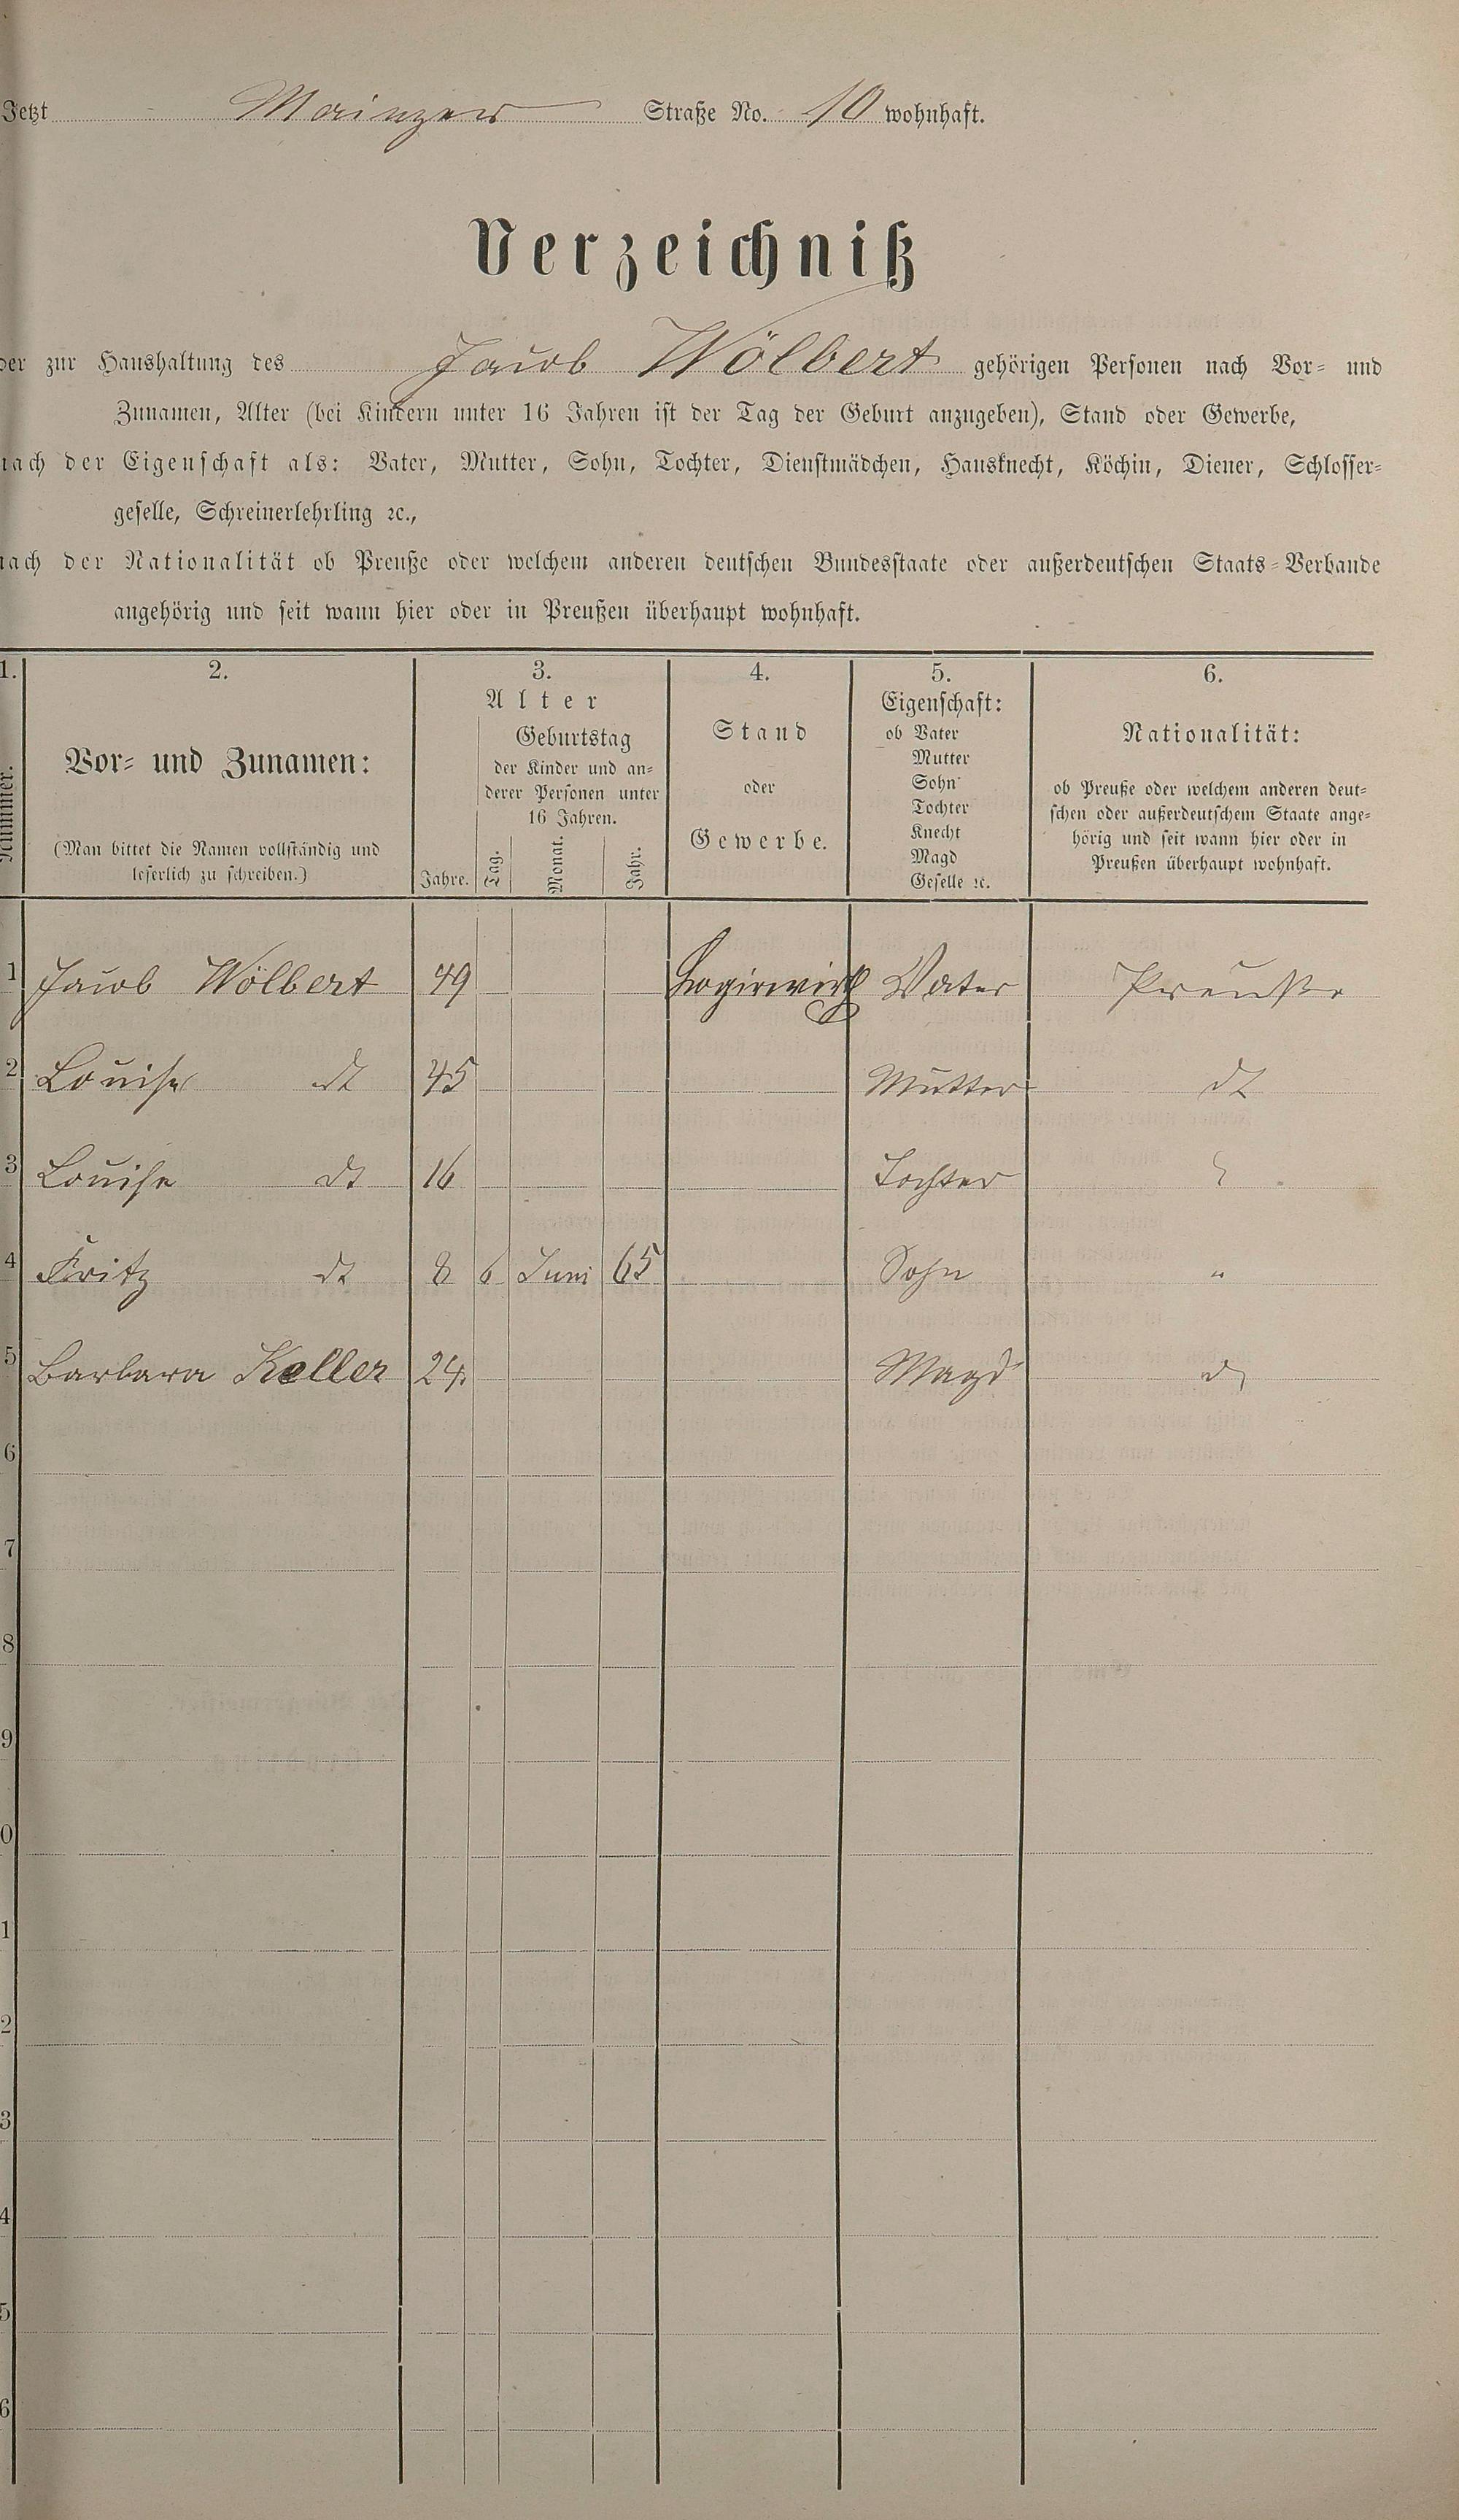 Jetzt Mainzer Straße No. 10 wohnhaft.
Verzeichniß
der zur Haushaltung des Jacob Wölbert gehörigen Personen nach Vor- und
Zunamen, Alter (bei Kindern unter 16 Jahren ist der Tag der Geburt anzugeben), Stand oder Gewerbe,
nach der Eigenschaft als: Vater, Mutter, Sohn, Tochter, Dienstmädchen, Hausknecht, Köchin, Diener, Schlosser-
geselle, Schreinerlehrling ꝛc.,
nach der Nationalität ob Preuße oder welchem anderen deutschen Bundesstaate oder außerdeutschen Staats-Verbande
angehörig und seit wann hier oder in Preußen überhaupt wohnhaft.
1. 2. 3. 4. 5. 6.
Nummer.
Vor- und Zunamen:
(Man bittet die Namen vollständig und
leserlich zu schreiben.)
Alter
Jahre.
Geburtstag
der Kinder und an-
derer Personen unter
16 Jahren.
Tag. Monat. Jahr.
Stand
oder
Gewerbe.
Eigenschaft:
ob Vater
Mutter
Sohn
Tochter
Knecht
Magd
Geselle ꝛc.
Nationalität:
ob Preuße oder welchem anderen deut-
schen oder außerdeutschem Staate ange-
hörig und seit wann hier oder in
Preußen überhaupt wohnhaft.
1 Jacob Wölbert 49 Logirwirth Vater Preuße
2 Louise dt 45 Mutter dt
3 Louise dt 16 Tochter
4 Fritz dt 8 6 Juni 65 Sohn "
5 Barbara Keller 24. Magd dt
6
7
8
9
0
1
2
3
4
5
6